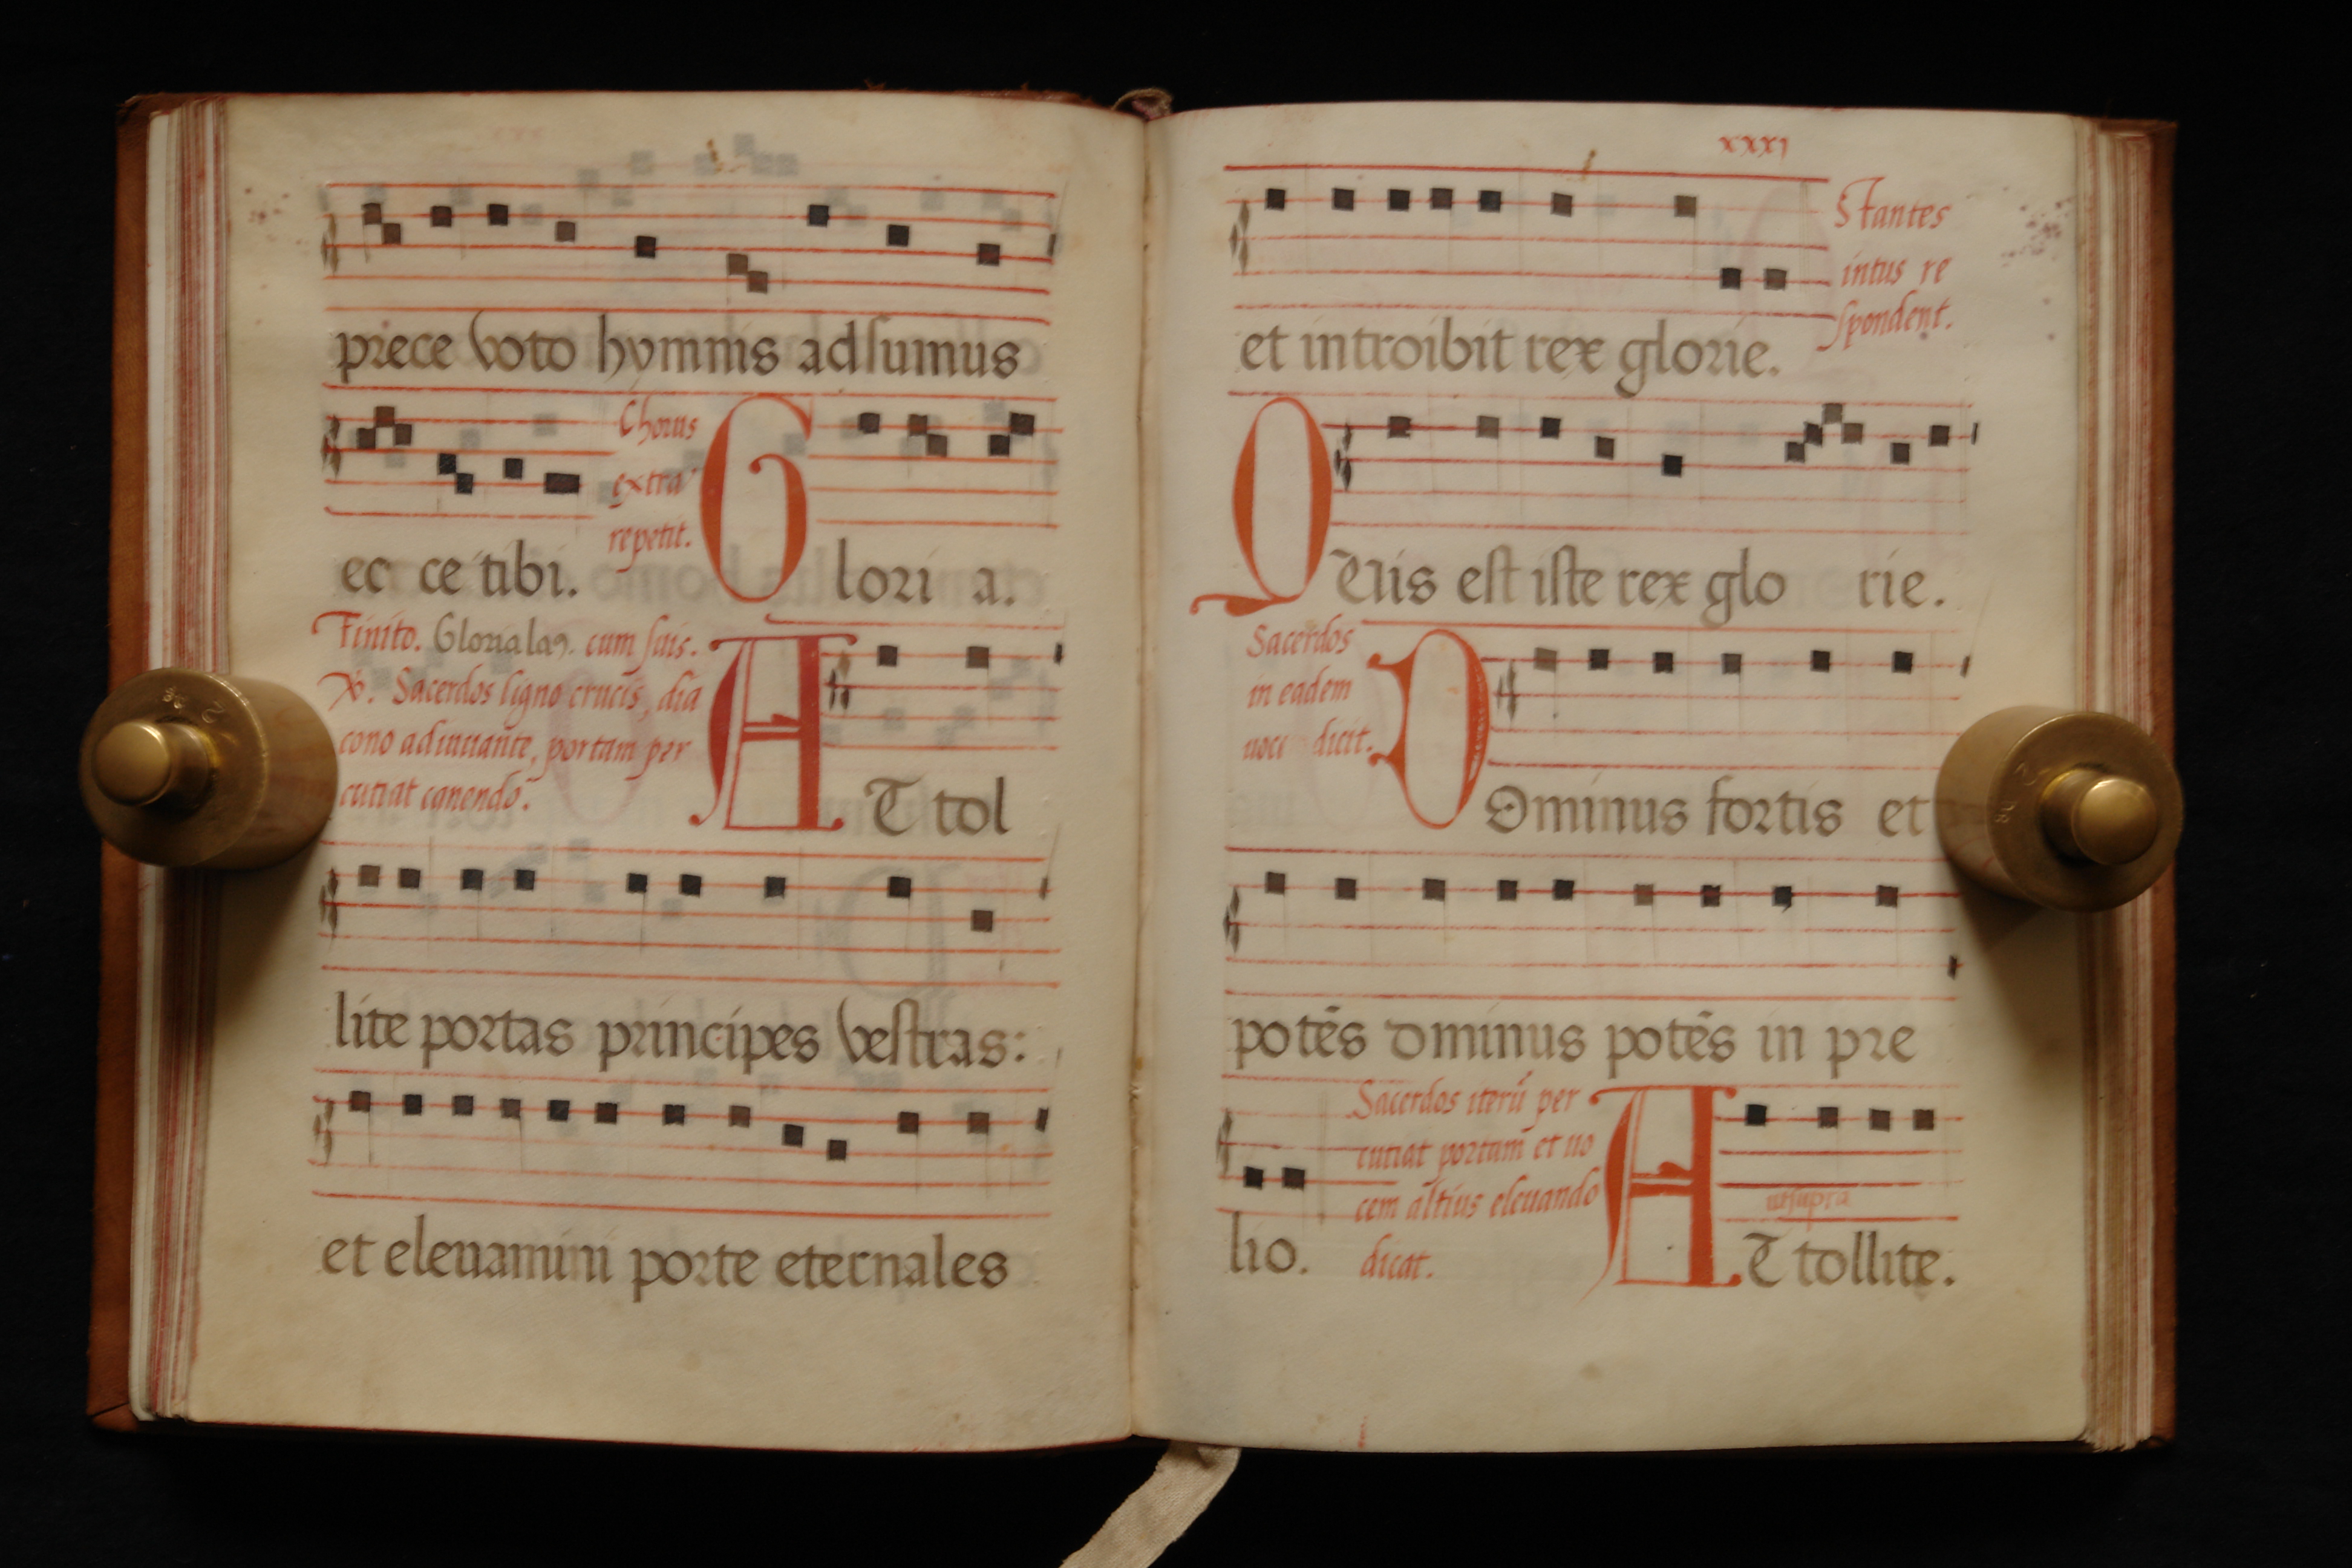 prece voto hymnis adsumus
Chorus
extra
repetit.
ec ce tibi. Glori a.
Finito. Gloria laꝰ. cum suis.
℣. Sacerdos ligno crucis, dia
cono adiuuante, portam per
cutiat canendo.
AT tol
lite portas principes vestras:
et eleuamini porte eternales
xxxi
Stantes
intus re
spondent.
et introibit rex glorie.
QUis est iste rex glo rie.
Sacerdos
in eadem
uoce dicit.
DOminus fortis et
potēs dminus potēs in pre
Sacerdos iterū per
cutiat portam et uo
cem altius eleuando
dicat.
utsupra
lio. AT tollite.